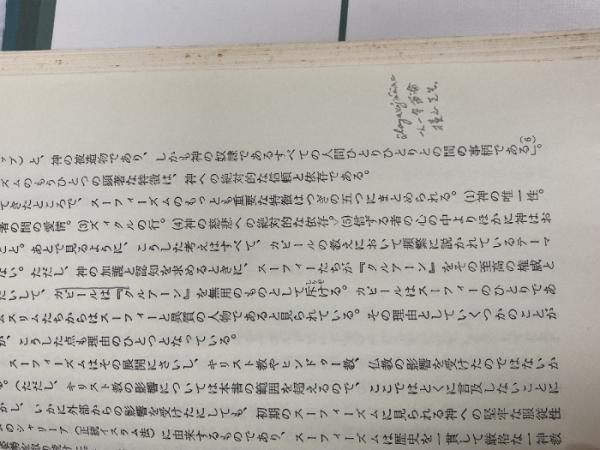 ップ)と、神の被造物であり、しかも神の奴隷であるすべての人間ひとりひとりとの間の事柄である」。(6)
ズムのもうひとつの顕著な特徴は、神への絶対的な信頼と依存である。
てきたところで、スーフィーズムのもっとも重要な特徴はつぎの五つにまとめられる。(1)神の唯一性。
者の間の愛情。(3)ズィクルの行。(4)神の慈悲への絶対的な依存。(5)信ずる者の心の中よりほかに神はお
こと。あとで見るように、こうした考えはすべて、カビールの教えにおいて頻繁に説かれているテーマ
ない。ただし、神の加護と認知を求めるときに、スーフィーたちが『クルアーン』をその至高の権威と
たいして、カビールは『クルアーン』を無用のものとして斥ける。カビールはスーフィーのひとりであ
ムスリムたちからはスーフィーと異質の人物であると見られている。その理由としていくつかのことが
が、こうした点も理由のひとつとなっている。
スーフィーズムはその展開にさいし、キリスト教やヒンドゥー教、仏教の影響を受けたのではないか
る。(ただし、キリスト教の影響については本書の範囲を超えるので、ここではとくに言及しないことに
かし、いかに外部からの影響を受けたにしても、初期のスーフィーズムに見られる神への堅牢な服従性
ムのシャリーア(正統イスラム法)に由来するものであり、スーフィーズムは歴史を一貫して厳格な一神教